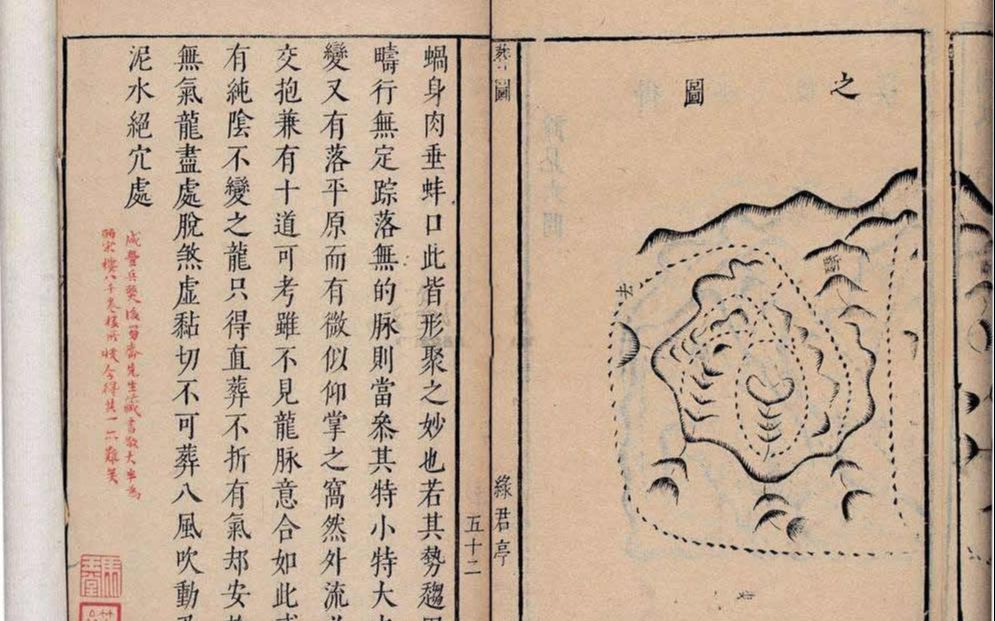 之
圖
葬圖
綠君亭
五十二
蝸身肉垂蚌口此皆形聚之妙也若其勢趨
疇行無定踪落無的脉則當叅其特小特大
變又有落平原而有微似仰掌之窩然外流
交抱兼有十道可考雖不見龍脉意合如此
有純陰不變之龍只得直葬不折有氣却安
無氣龍盡處脫煞虛黏切不可葬八風吹動
泥水絕穴處
咸豐兵燹後
先生藏書散大半為
皕宋樓八千卷樓所收今得其一亦難矣